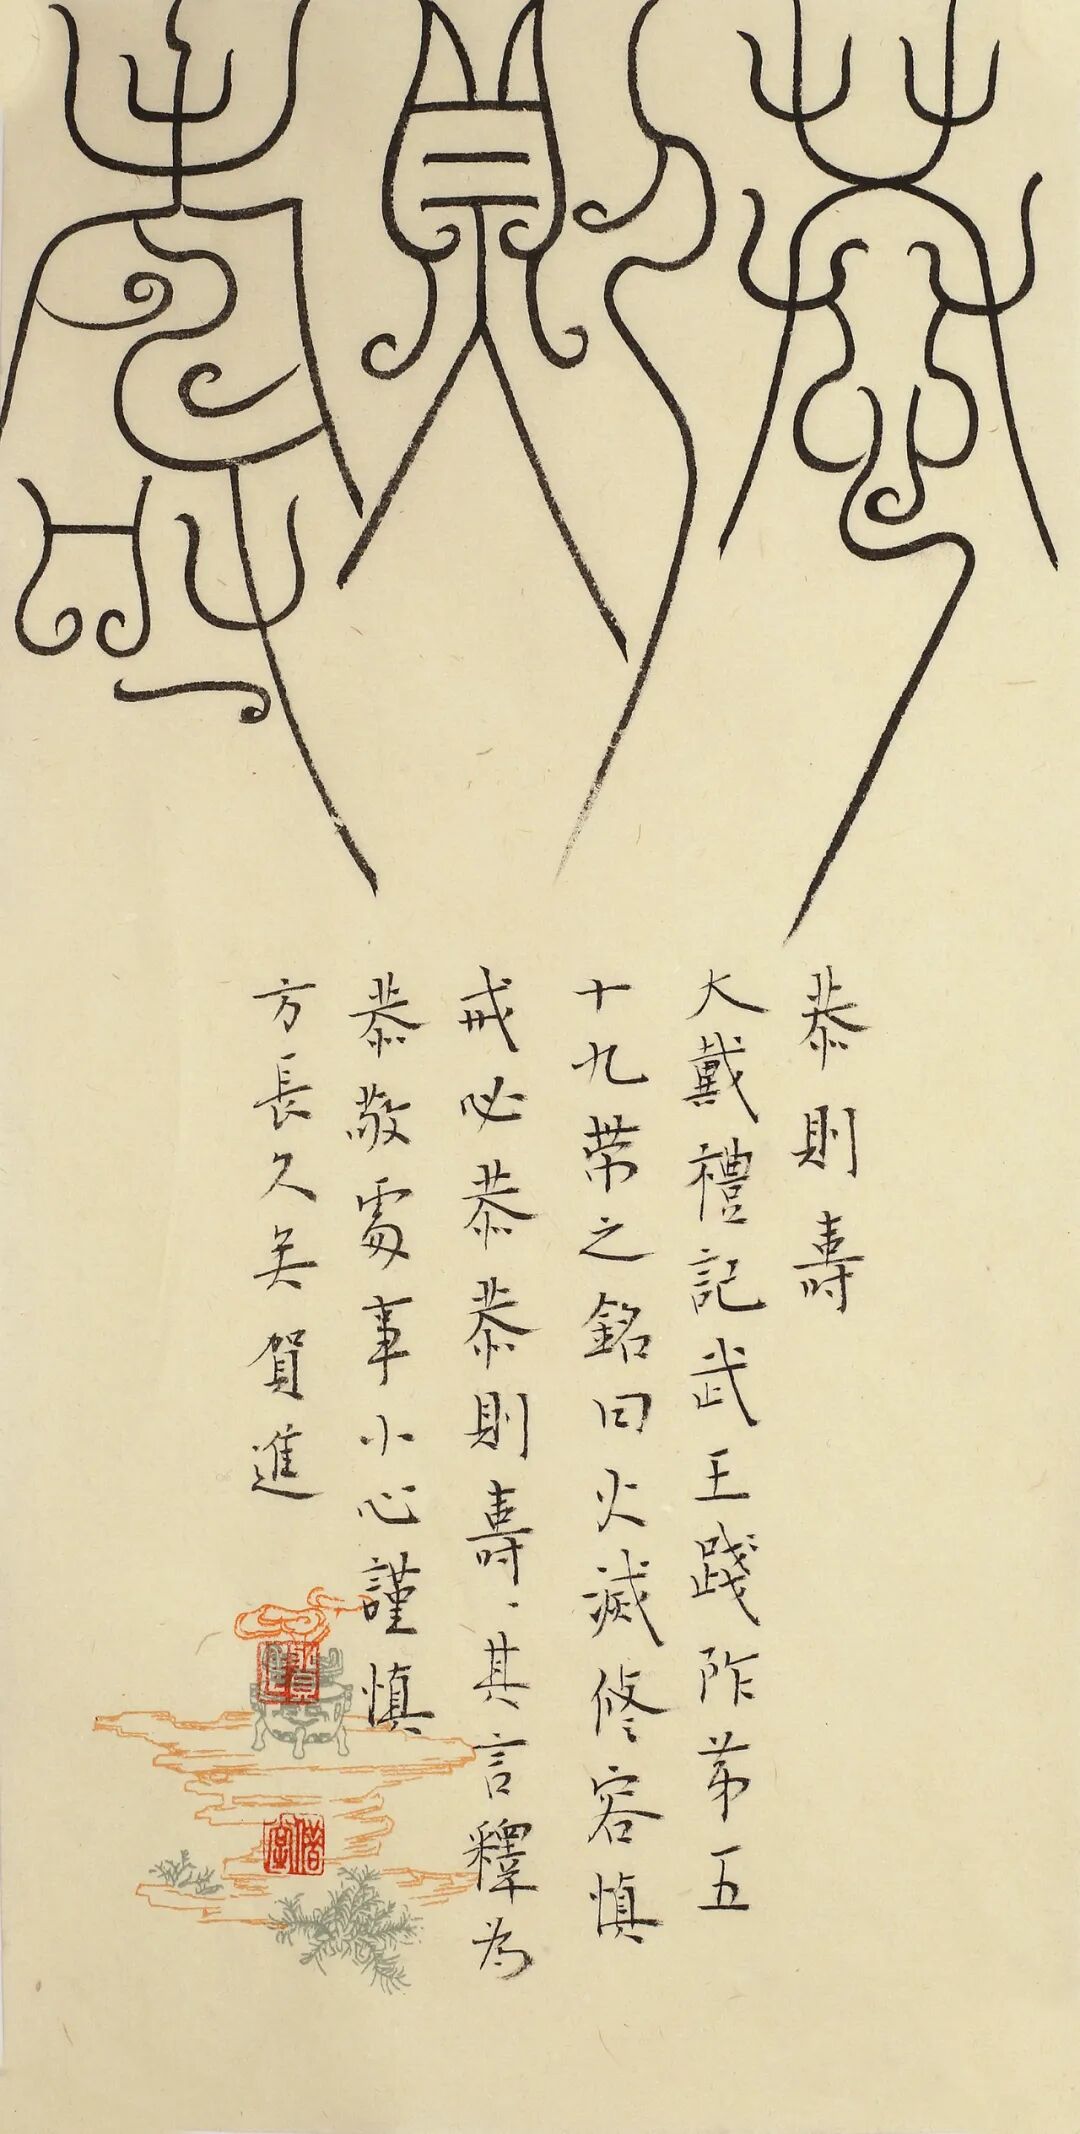 恭則壽
恭則壽
大戴禮記武王踐阼苐五
十九帶之銘曰火滅修容慎
戒必恭恭則壽其言釋為
恭敬處事小心謹慎
方長久矣賀進
賀進